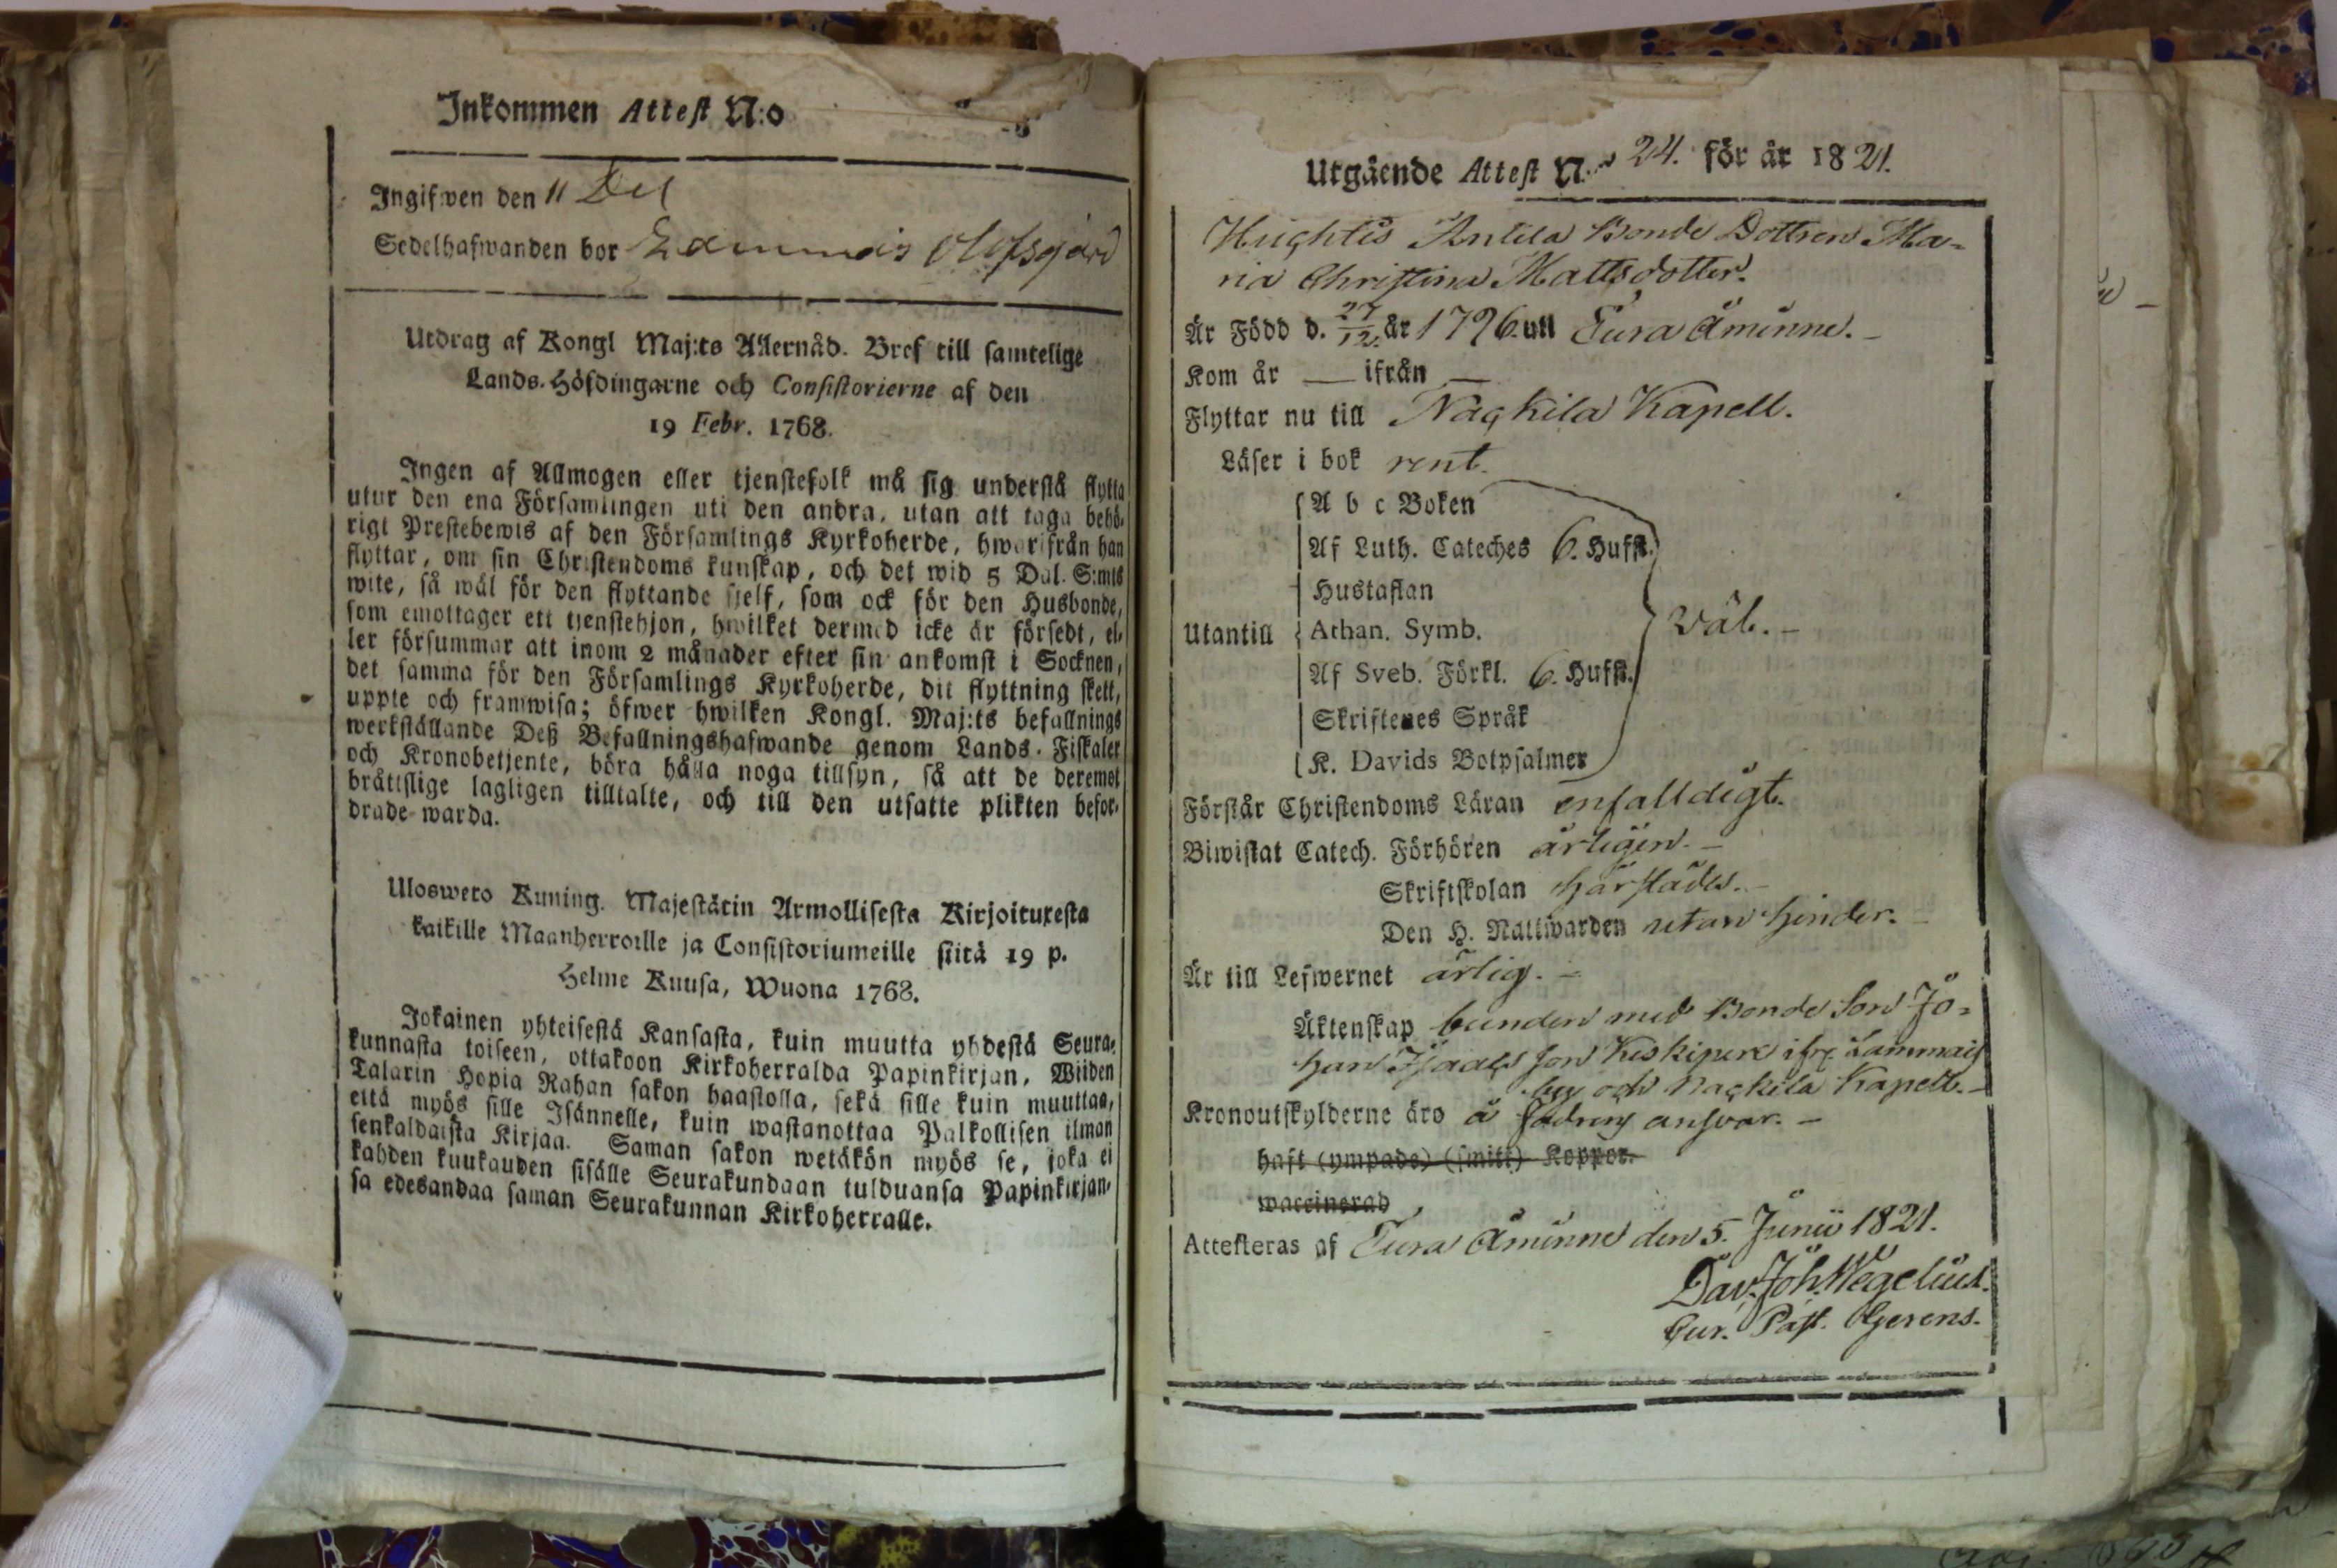 Inkommen Attest N:o
Ingifwen den 11 Dec
Sedelhafwanden bor Olofsgård
Utdrag af Kongl Maj:ts Allernåd. Bref till samtelige
Lands-Höfdingarne och Consistorierne af den
19 Febr. 1768.
Ingen af Allmogen eller tjenstefolk må sig understå flytta
utur den ena Församlingen uti den andra, utan att taga behö-
rigt Prestebewis af den Församlings Kyrkoherde, hwarifrån han
flyttar, om sin Christendoms kunskap, och det wid 5 Dal. S:mts
wite, så wäl för den flyttande sjelf, som ock för den Husbonde,
som emottager ett tjenstehjon, hwilket dermed icke är försedt, el-
ler försummar att inom 2 månader efter sin ankomst i Socknen,
det samma för den Församlings Kyrkoherde, dit flyttning skett,
uppte och framwisa; öfwer hwilken Kongl. Maj:ts befallnings
werkställande Deß Befallningshafwande genom Lands-Fiskaler
och Kronobetjente, böra hålla noga tillsyn, så att de deremot
bråttslige lagligen tilltalte, och till den utsatte plikten befor-
drade warda.
Ulosweto Kuning. Majestätin Armollisesta Kirjoituxesta
kaikille Maanherroille ja Consistoriumeille siitä 19 p.
Helme Kuusa, Wuona 1768.
Jokainen yhteisestä Kansasta, kuin muutta yhdestä Seura-
kunnasta toiseen, ottakoon Kirkoherralda Papinkirjan, Wiiden
Talarin Hopia Rahan sakon haastolla, sekä sille kuin muuttaa,
että myös sille Isännelle, kuin wastanottaa Palkollisen ilman
senkaldaista Kirjaa. Saman sakon wetäkön myös se, joka ei
kahden kuukauden sisälle Seurakundaan tulduansa Papinkirjan-
sa edesandaa saman Seurakunnan Kirkoherralle.
Utgående Attest N:o 24. för år 1821.
Huightis Antila Bonde Dottren Ma-
ria Christina Mattsdotter.
Är Född d. 27/12. år 1796. uti Eura Åminne. -
Kom år — ifrån —
Flyttar nu till Nackila Kapell.
Läser i bok rent.
A b c Boken
Af Luth. Cateches 6. Hufst.
Hustaflan
Utantill Athan. Symb. wäl. -
Af Sveb. Förkl. 6. Hufst.
Skriftenes Språk
K. Davids Botpsalmer
Förstår Christendoms Läran enfalldigt.
Biwistat Catech. Förhören årligen. -
Skriftskolan härstädes. -
Den H. Nattwarden utan hinder. -
Är till Lefwernet ärlig. -
Äktenskap bunden med Bonde Son Jo-
han Isaacs son Keskipere ifr. Lammais
by och Nackila Kapell. -
Kronoutskylderne äro å fadrens answar. -
haft (ympade) (smitt) Koppor.
waccinerad
Attesteras af Eura Åminne den 5. Junii 1821.
Dav. Joh. Wegelius.
Cur. Past. Gerens.